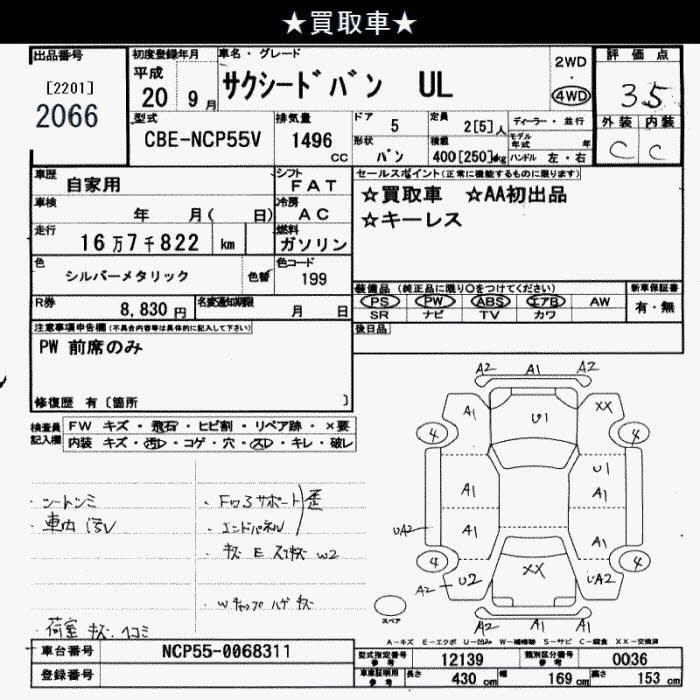 ★買取車★
出品番号
[2201]
2066
初度登録年月
平成
20 9月
車名・グレード
サクシードバン UL
2WD
・
4WD
評価点
3.5
外装 内装
C C
型式
CBE-NCP55V
排気量
1496
CC
ドア
5
定員
2[5]人
ディーラー・並行
形状
バン
積載
400[250]kg
モデル年式 年
ハンドル 左・右
車歴
自家用
シフト
FAT
車検
年 月( 日)
冷房
AC
走行
16万7千822 km
燃料
ガソリン
色
シルバーメタリック
色替
色コード
199
R券
8,830円
名変通知期限
月 日
セールスポイント(正常に機能するものに限ります)
☆買取車 ☆AA初出品
☆キーレス
装備品(純正品に限り○をつけてください)
PS PW ABS エアB AW
SR ナビ TV カワ
新車保証書
有・無
後日品
注意事項申告欄(不具合内容等は具体的に記入して下さい)
PW 前席のみ
修復歴 有〔箇所 〕
検査員記入欄
FW キズ・飛石・ヒビ割・リペア跡・×要
内装 キズ・汚レ・コゲ・穴・スレ・キレ・破レ
・シートシミ
・車内汚レ
・荷室 キズ ヘコミ
・Fロアサポート 歪
・エンドパネル
・キズ E W2
・Wキャップ ハゲ キズ
A2 A1 A2
A1 U1 XX
4 4
U1
A1 A1
UA2 A1 A1
4 4
A2 U2 XX UA2
A2 A1 A1
スペア
A-キズ E-エクボ U-凹み W-補修跡 S-サビ C-腐食 XX-交換済
車台番号
NCP55-0068311
登録番号
型式指定番号
参考
12139
類別区分番号
参考
0036
車庫証明用
参考
長さ
430 cm
幅
169 cm
高さ
153 cm